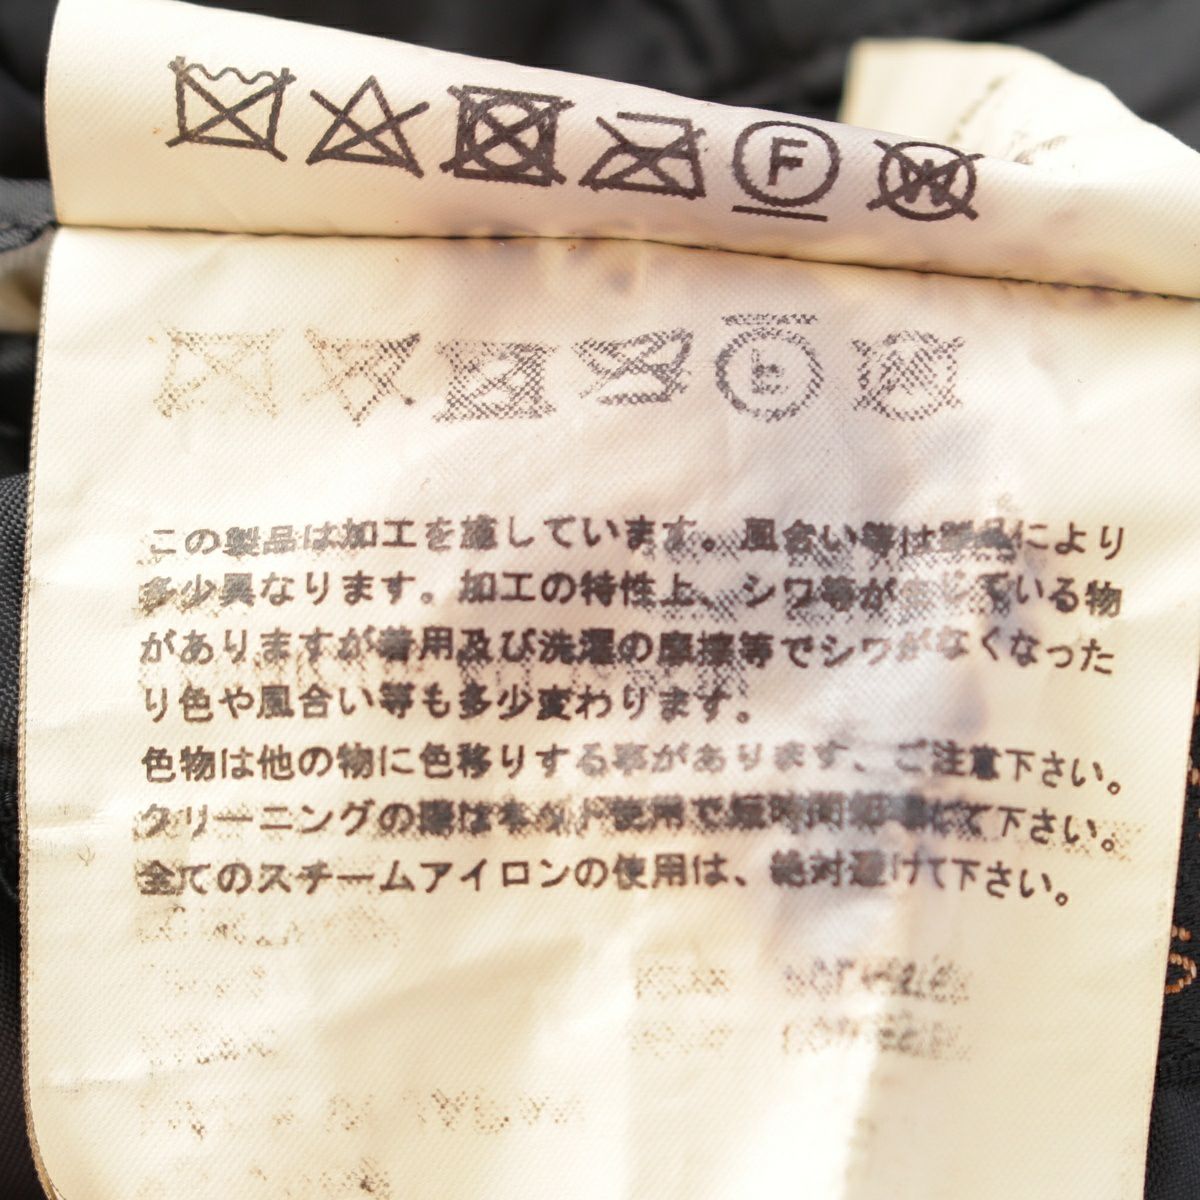 F
W
この製品は加工を施しています。風合い等は製品により
多少異なります。加工の特性上、シワ等が生じている物
がありますが着用及び洗濯の摩擦等でシワがなくなった
り色や風合い等も多少変わります。
色物は他の物に色移りする事があります、ご注意下さい。
クリーニングの際は使用で短時間処理にて下さい。
全てのスチームアイロンの使用は、絶対避けて下さい。